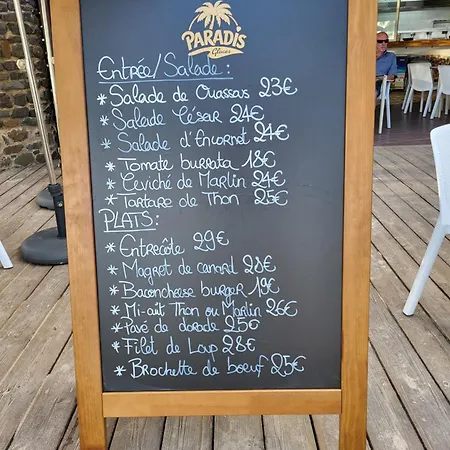 PARADIS
Glaces
Entrée/Salade:
* Salade de Ouassas 23€
* Salade César 24€
* Salade d'Encornet 24€
* Tomate burrata 18€
* Ceviché de Marlin 24€
* Tartare de Thon 25€
PLATS:
* Entrecôte 29€
* Magret de canard 28€
* Baconcheese burger 19€
* Mi-cuit Thon ou Marlin 26€
* Pavé de dorade 25€
* Filet de Loup 28€
* Brochette de boeuf 25€